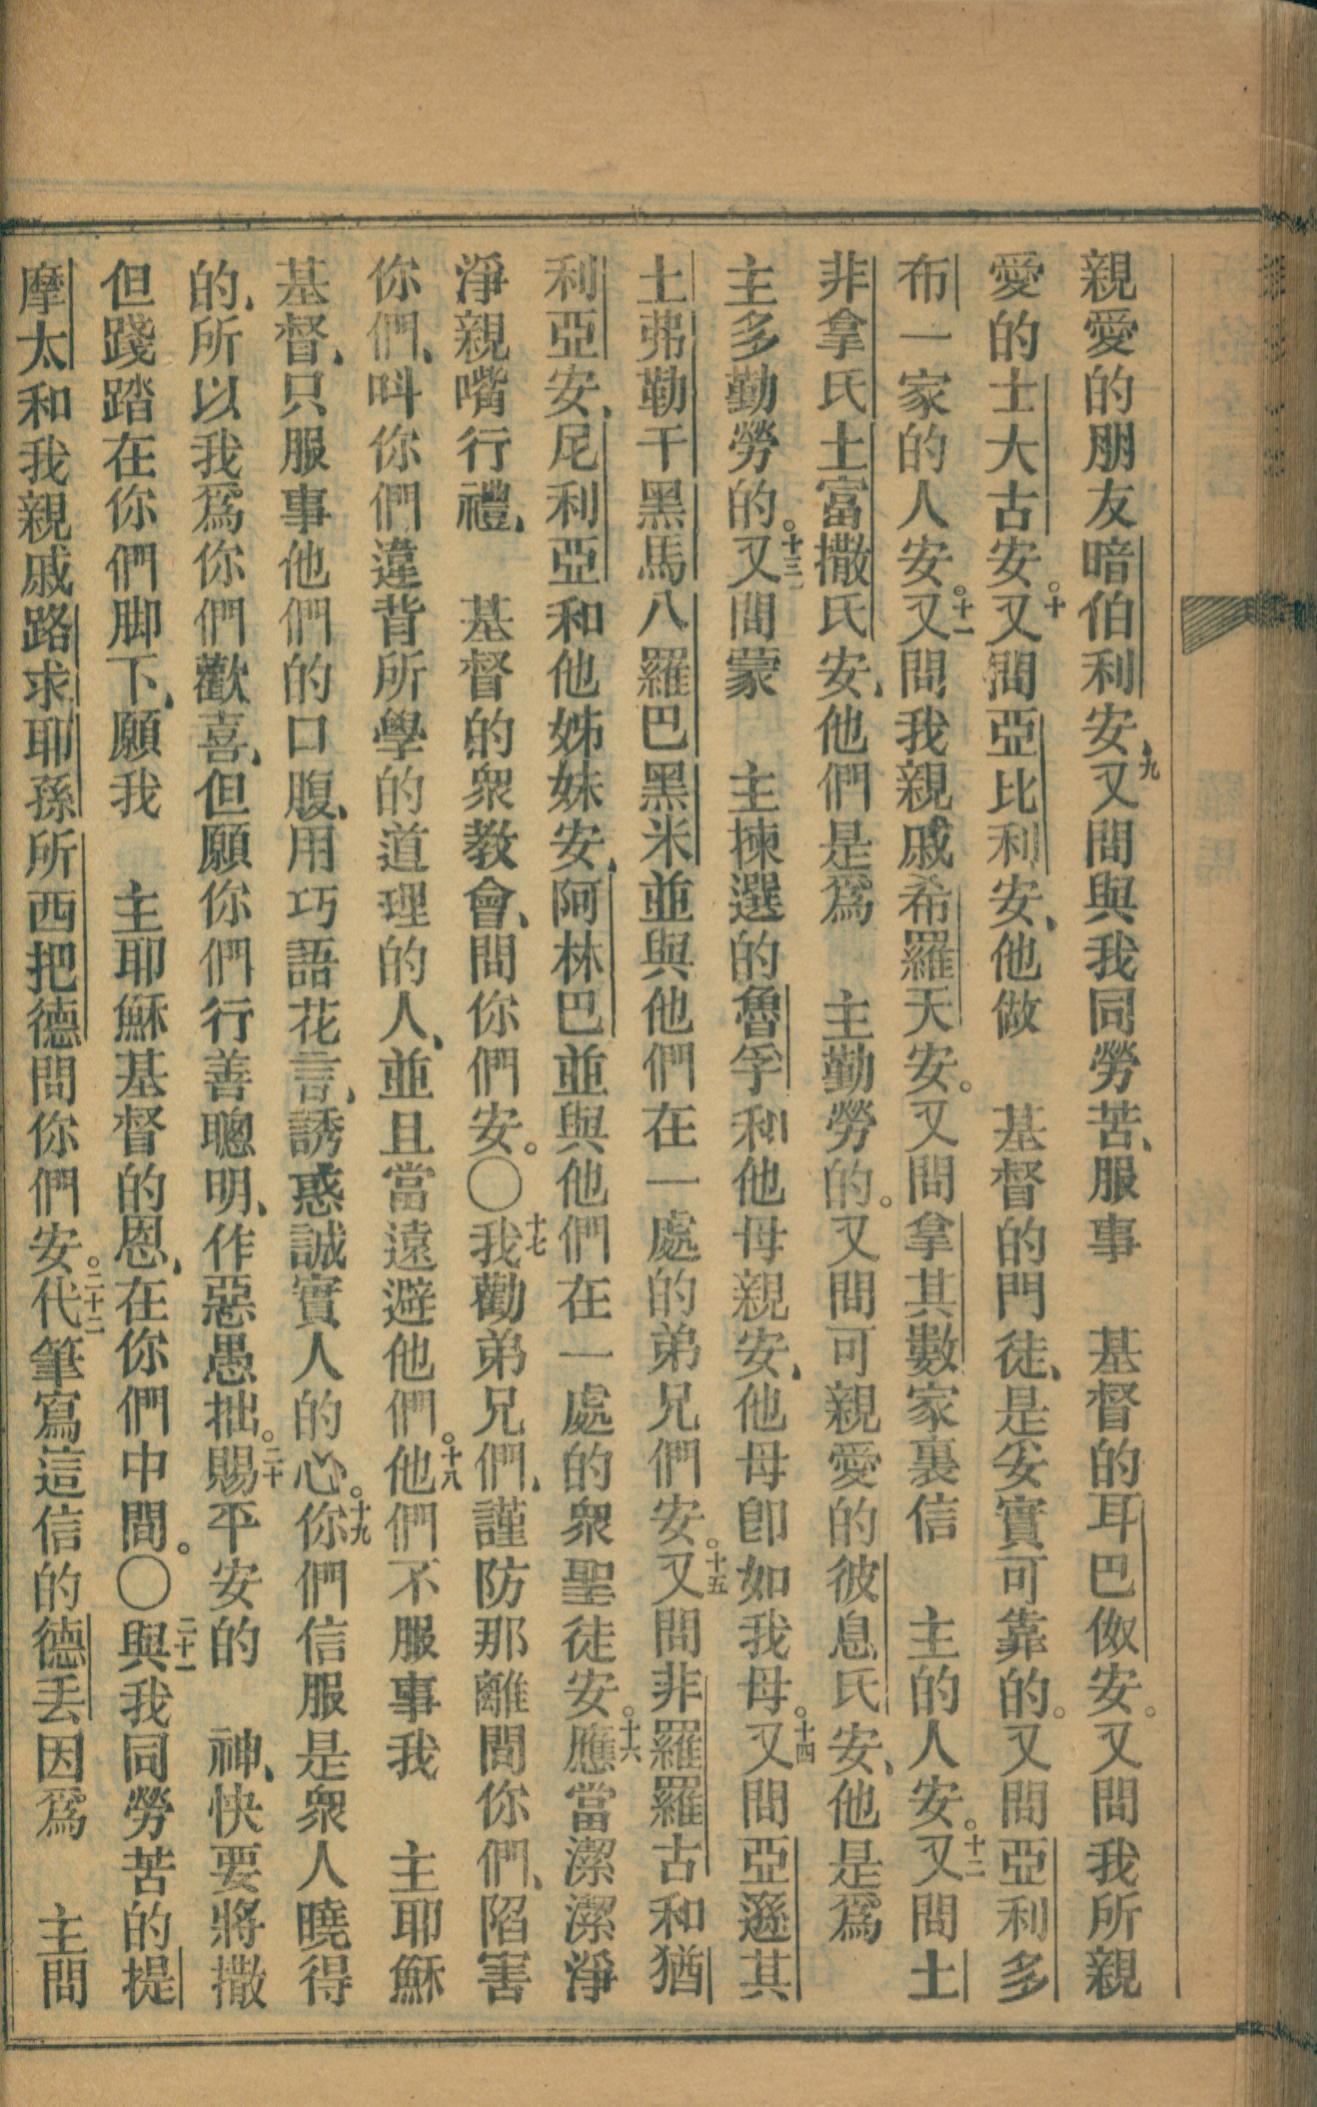 親愛的朋友暗伯利安、九又問與我同勞苦、服事 基督的耳巴伮安。又問我所親
愛的士大古安。十又問亞比利安、他做 基督的門徒、是妥實可靠的。又問亞利多
布一家的人安。十一又問我親戚希羅天安。又問拿其數家裏信 主的人安。十二又問土
非拿氏土富撒氏安、他們是爲 主勤勞的。又問可親愛的彼息氏安、他是爲
主多勤勞的。十三又問蒙 主揀選的魯孚和他母親安、他母卽如我母。十四又問亞遜其
土弗勒干黑馬八羅巴黑米並與他們在一處的弟兄們安。十五又問非羅羅古和猶
利亞安、尼利亞和他姊妹安、阿林巴並與他們在一處的衆聖徒安。十六應當潔潔淨
淨親嘴行禮、 基督的衆教會、問你們安。〇十七我勸弟兄們、謹防那離間你們、陷害
你們、呌你們違背所學的道理的人、並且當遠避他們。十八他們不服事我 主耶穌
基督、只服事他們的口腹、用巧語花言、誘惑誠實人的心。十九你們信服是衆人曉得
的、所以我爲你們歡喜、但願你們行善聰明、作惡愚拙。二十賜平安的 神、快要將撒
但踐踏在你們脚下、願我 主耶穌基督的恩、在你們中間。〇二十一與我同勞苦的提
摩太和我親戚路求耶孫所西把德問你們安。二十二代筆寫這信的德丟因爲 主問